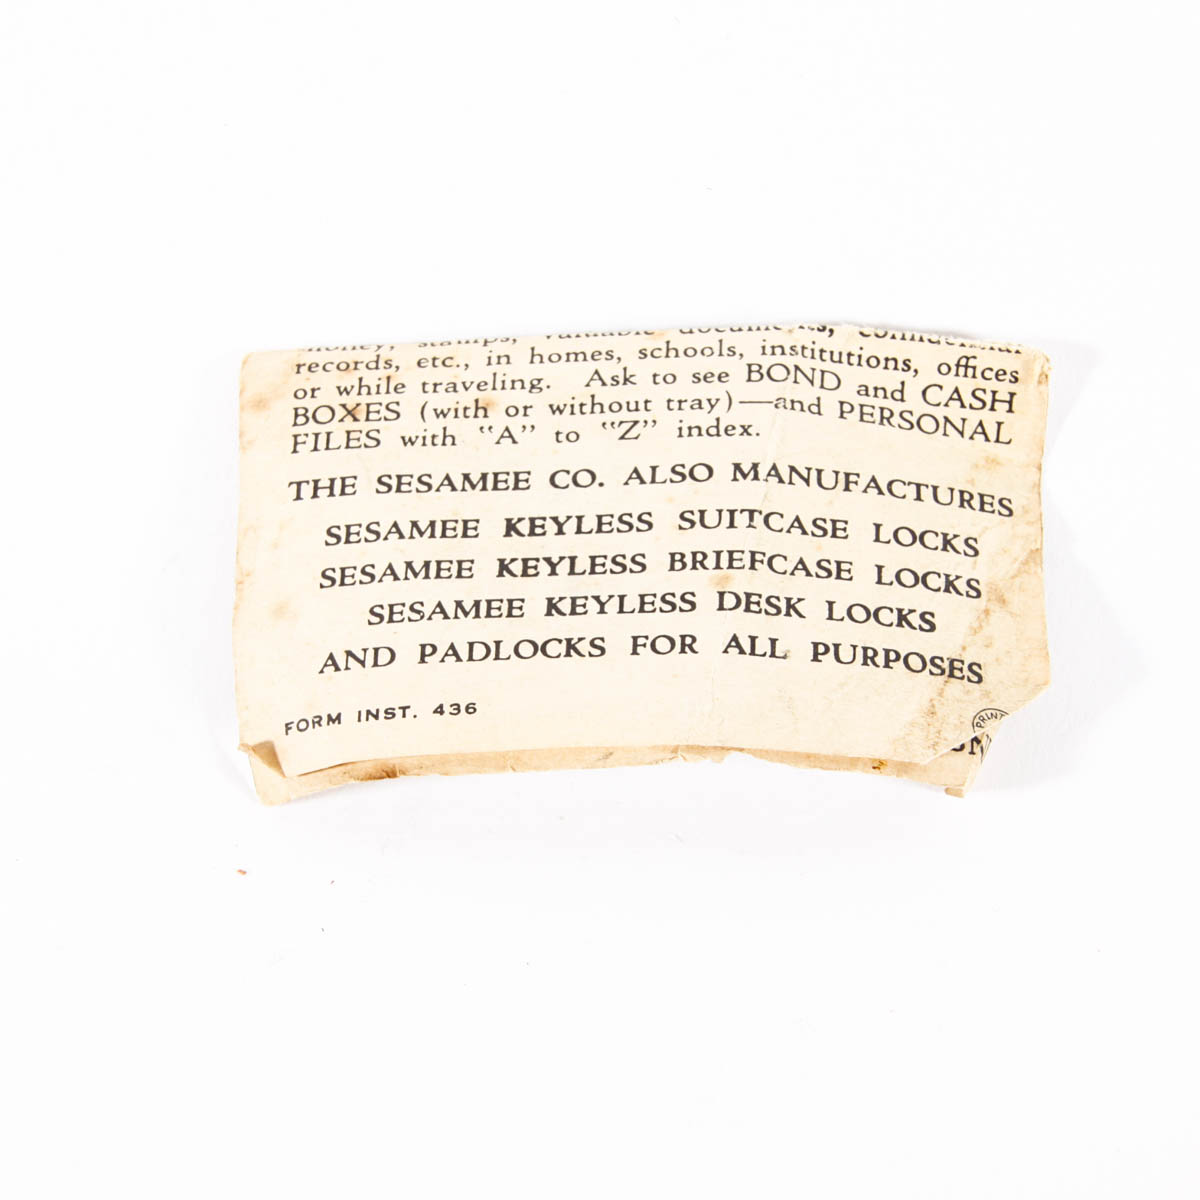 money, stamps, valuable documents, confidential
records, etc., in homes, schools, institutions, offices
or while traveling. Ask to see BOND and CASH
BOXES (with or without tray)—and PERSONAL
FILES with "A" to "Z" index.
THE SESAMEE CO. ALSO MANUFACTURES
SESAMEE KEYLESS SUITCASE LOCKS
SESAMEE KEYLESS BRIEFCASE LOCKS
SESAMEE KEYLESS DESK LOCKS
AND PADLOCKS FOR ALL PURPOSES
FORM INST. 436